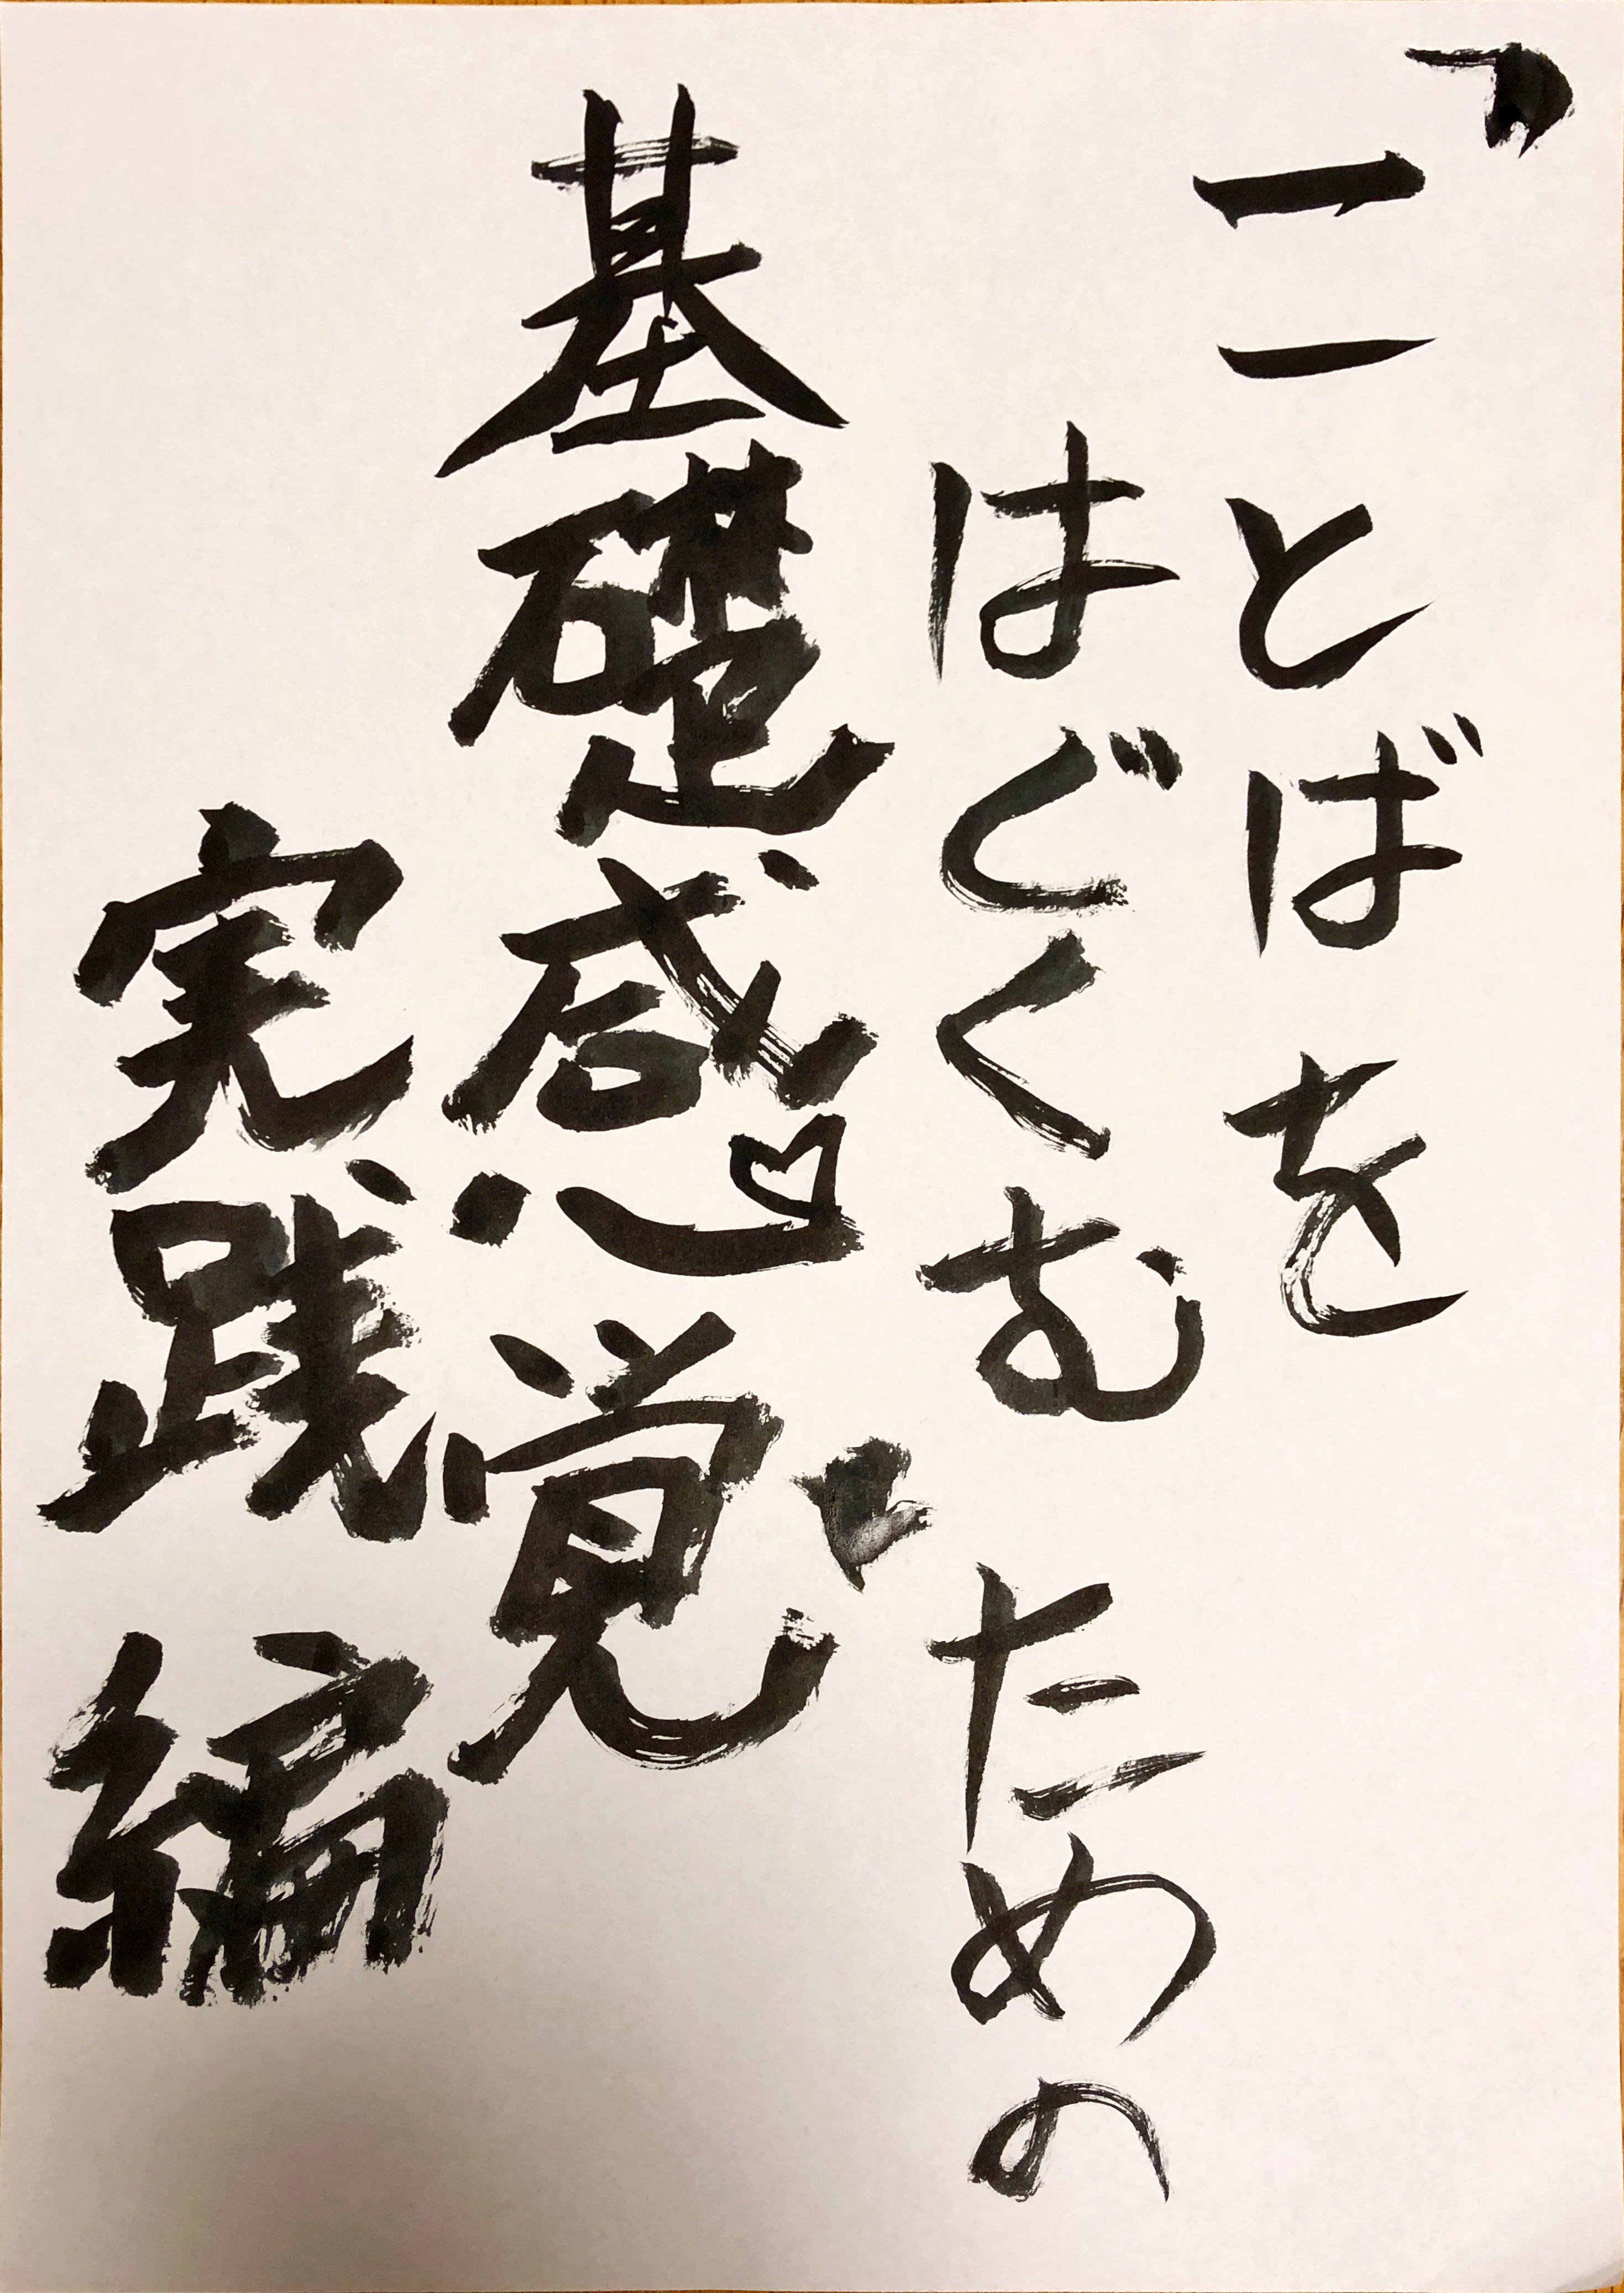 『ことばを
はぐくむ』ための
基礎感覚
実践編